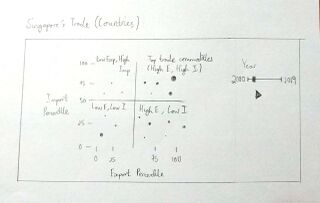 Singapore's Trade (Countries)
100
Low Exp, High
Imp
Top trade commodities
(High E, High I)
Year
75
2000
2019
Import
Percentile
50
Low E, Low I
High E, Low I
25
0
0
25
75
100
Export Percentile